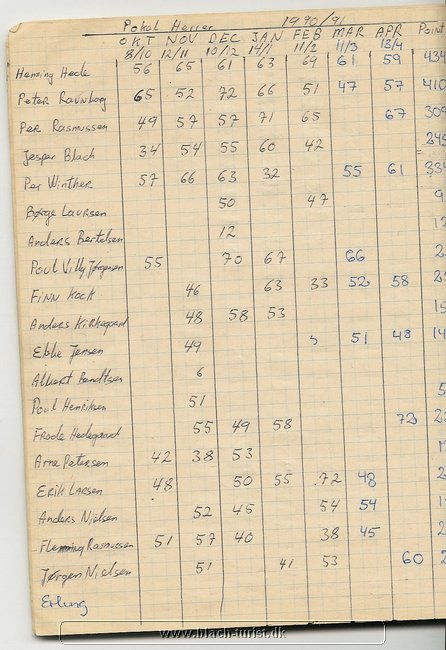 Pokal Herrer 1990/91
OKT NOV DEC JAN FEB MAR APR Point
8/10 12/11 10/12 14/1 11/2 11/3 13/4
Henning Hede 56 65 61 63 69 61 59 434
Peter Raunborg 65 52 72 66 51 47 57 410
Per Rasmussen 49 57 57 71 65 67
Jesper Blach 34 54 55 60 42 245
Per Winther 57 66 63 32 55 61
Børge Laursen 50 47
Anders Bertelsen 12
Poul Villy Jørgensen 55 70 67 66
Finn Kock 46 63 33 52 58
Anders Kirkegaard 48 58 53
Ebbe Jensen 49 51 48
Albert Bendtsen 6
Poul Henriksen 51
Frode Hedegaard 55 49 58 72
Arne Petersen 42 38 53
Erik Larsen 48 50 55 72 48
Anders Nielsen 52 45 54 54
Flemming Rasmussen 51 57 40 38 45
Jørgen Nielsen 51 41 53 60
Erling
www.blach-turist.dk